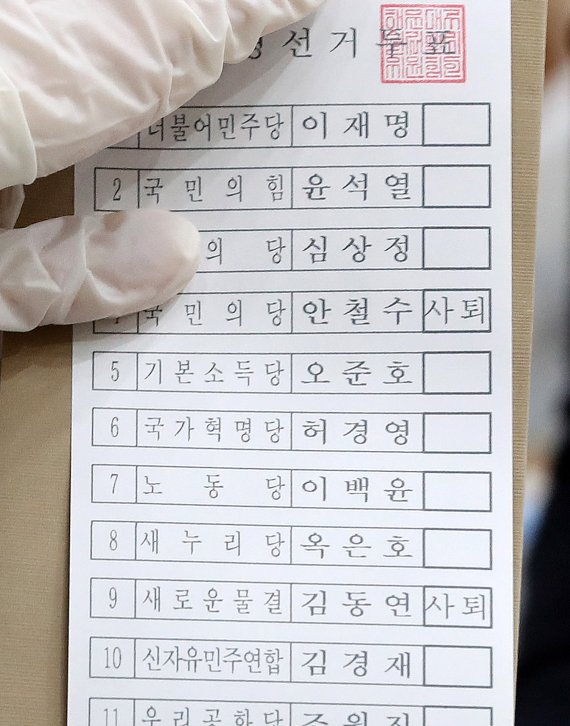 선거투표
더불어민주당 이재명
2 국민의힘 윤석열
의당 심상정
4 국민의당 안철수 사퇴
5 기본소득당 오준호
6 국가혁명당 허경영
7 노동당 이백윤
8 새누리당 옥은호
9 새로운물결 김동연 사퇴
10 신자유민주연합 김경재
11 우리공화당 조원진